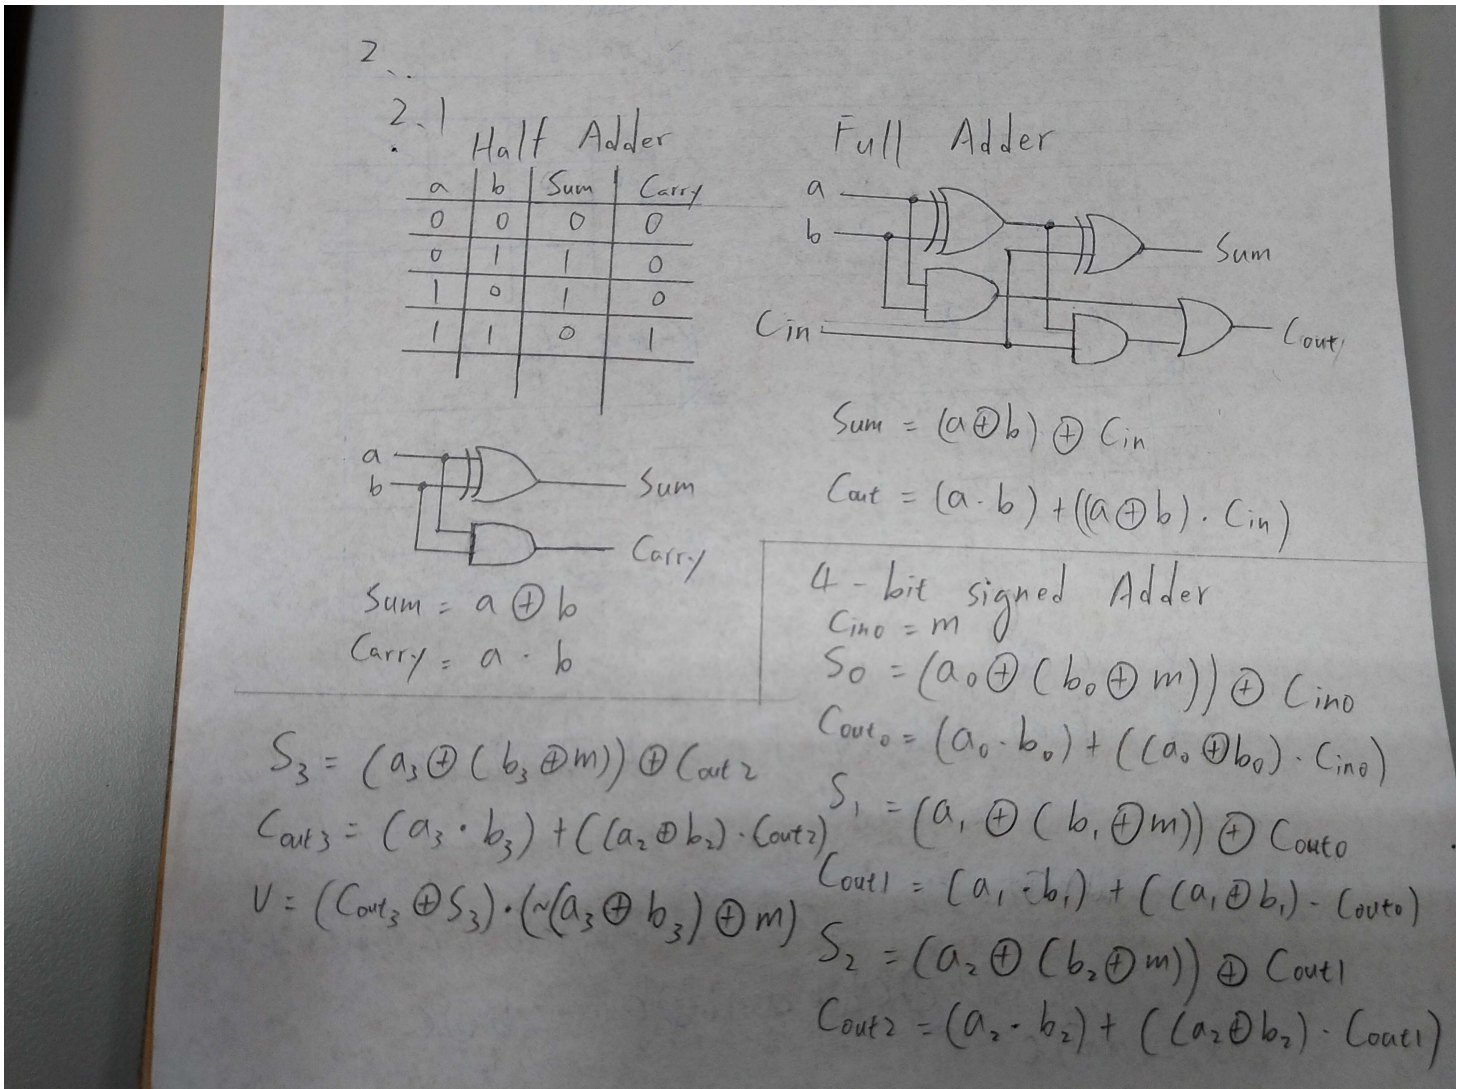 2.
2.1
Half Adder
a b Sum Carry
0 0 0 0
0 1 1 0
1 0 1 0
1 1 0 1
a
b
Sum
Carry
Sum = a ⊕ b
Carry = a · b
Full Adder
a
b
Cin
Sum
Cout
Sum = (a⊕b) ⊕ Cin
Cout = (a·b) + ((a⊕b)·Cin)
4-bit signed Adder
Cin0 = m
S0 = (a0⊕(b0⊕m)) ⊕ Cin0
Cout0 = (a0·b0) + ((a0⊕b0)·Cin0)
S1 = (a1⊕(b1⊕m)) ⊕ Cout0
Cout1 = (a1·b1) + ((a1⊕b1)·Cout0)
S2 = (a2⊕(b2⊕m)) ⊕ Cout1
Cout2 = (a2·b2) + ((a2⊕b2)·Cout1)
S3 = (a3⊕(b3⊕m)) ⊕ Cout2
Cout3 = (a3·b3) + ((a2⊕b2)·Cout2)
V = (Cout3⊕S3)·(~(a3⊕b3)⊕m)